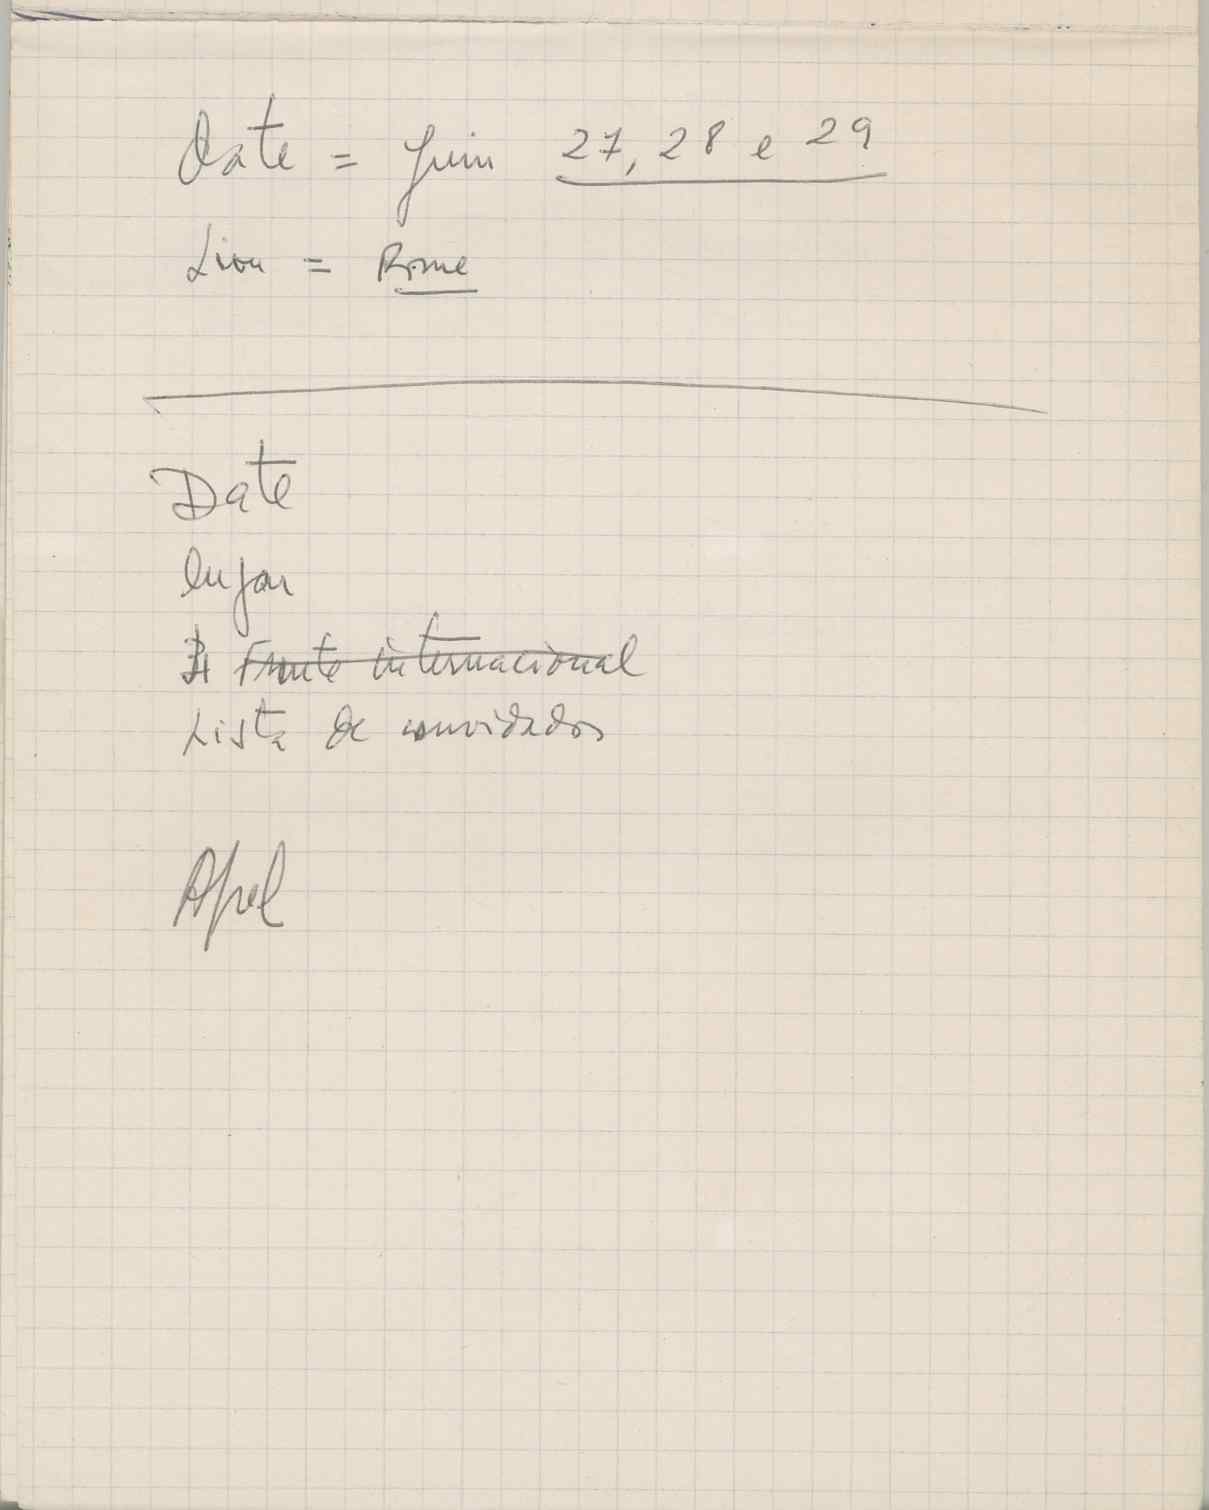 Date = Juin 27, 28 e 29
Lieu = Rome
Date
lugar
Frente internacional
Lista de convidados
Apel